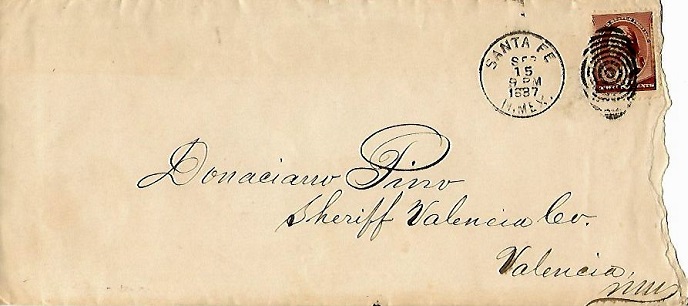 SANTA FE
SEP
15
9 PM
1887
N. MEX.
TWO CENTS
Donaciano Pino
Sheriff Valencia Co.
Valencia,
NM